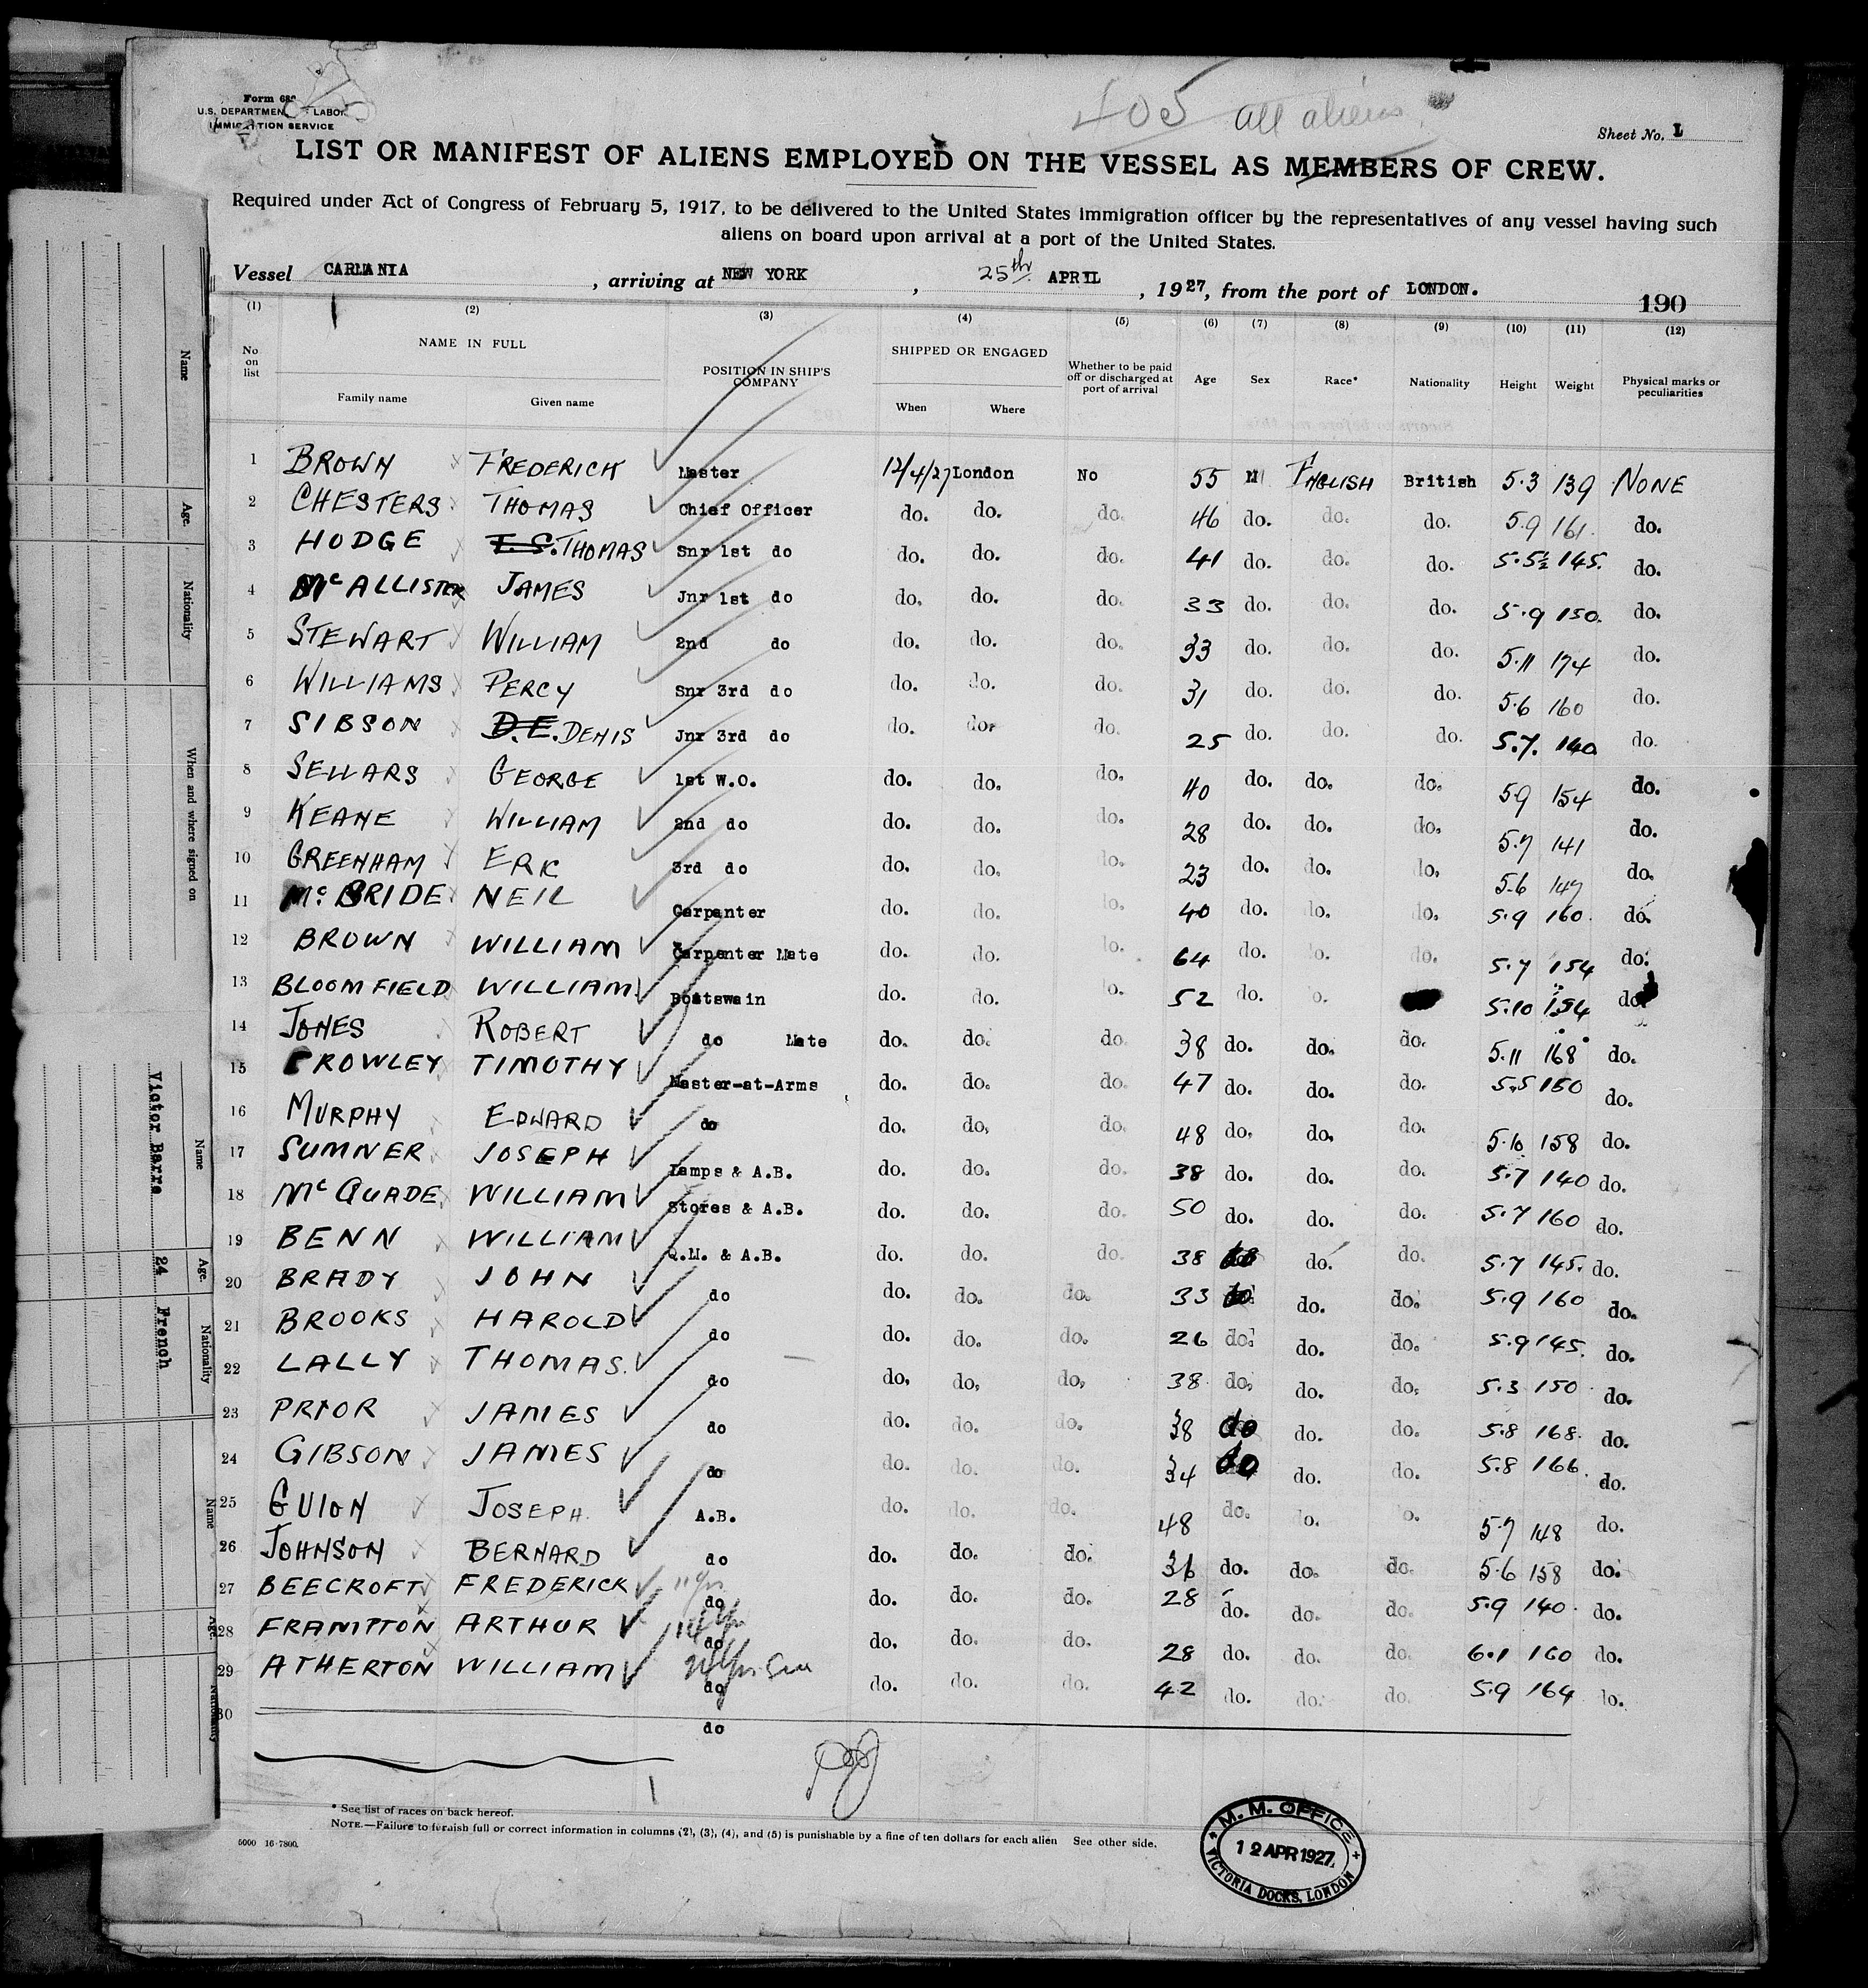 Form 689
U.S. DEPARTMENT OF LABOR
IMMIGRATION SERVICE
405 all aliens
Sheet No. 1
LIST OR MANIFEST OF ALIENS EMPLOYED ON THE VESSEL AS MEMBERS OF CREW.
Required under Act of Congress of February 5, 1917, to be delivered to the United States immigration officer by the representatives of any vessel having such
aliens on board upon arrival at a port of the United States.
Vessel CARMANIA, arriving at NEW YORK, 25th APRIL, 1927, from the port of LONDON.
190
(1) (2) (3) (4) (5) (6) (7) (8) (9) (10) (11) (12)
No on list NAME IN FULL POSITION IN SHIP'S COMPANY SHIPPED OR ENGAGED Whether to be paid off or discharged at port of arrival Age Sex Race* Nationality Height Weight Physical marks or peculiarities
Family name Given name When Where
1 BROWN FREDERICK Master 12/4/27 London No 55 M ENGLISH British 5.3 139 NONE
2 CHESTERS THOMAS Chief Officer do. do. do. 46 do. do. do. 5.9 161. do.
3 HODGE T.S. THOMAS Snr 1st do do. do. do. 41 do. do. do. 5.5½ 145. do.
4 McALLISTER JAMES Jnr 1st do do. do. do. 33 do. do. do. 5.9 150. do.
5 STEWART WILLIAM 2nd do do. do. do. 33 do. do. do. 5.11 174 do.
6 WILLIAMS PERCY Snr 3rd do do. do. do. 31 do. do. do. 5.6 160 do.
7 SIBSON D.E. DENIS Jnr 3rd do do. do. do. 25 do. do. do. 5.7. 140 do.
8 SELLARS GEORGE 1st W.O. do. do. do. 40 do. do. do. 5.9 154 do.
9 KEANE WILLIAM 2nd do do. do. do. 28 do. do. do. 5.7 141 do.
10 GREENHAM ERIC 3rd do do. do. do. 23 do. do. do. 5.6 147 do.
11 McBRIDE NEIL Carpenter do. do. do. 40 do. do. do. 5.9 160. do.
12 BROWN WILLIAM Carpenter Mate do. do. do. 64 do. do. do. 5.7 154 do.
13 BLOOMFIELD WILLIAM Boatswain do. do. do. 52 do. do. 5.10 154 do.
14 JONES ROBERT do Mate do. do. do. 38 do. do. do. 5.11 168 do.
15 CROWLEY TIMOTHY Master-at-Arms do. do. do. 47 do. do. do. 5.5 150 do.
16 MURPHY EDWARD do do. do. do. 48 do. do. do. 5.10 158 do.
17 SUMNER JOSEPH Lamps & A.B. do. do. do. 38 do. do. do. 5.7 140 do.
18 McQUADE WILLIAM Stores & A.B. do. do. do. 50 do. do. do. 5.7 160 do.
19 BENN WILLIAM Q.M. & A.B. do. do. do. 38 do do. do. 5.7 145. do.
20 BRADY JOHN do do. do. do. 33 do. do. do. 5.9 160 do.
21 BROOKS HAROLD do do. do. do. 26 do. do. do. 5.9 145. do.
22 LALLY THOMAS. do do. do. do. 38. do. do. do. 5.3 150 do.
23 PRIOR JAMES do do. do. do. 38 do do. do. 5.8 168. do.
24 GIBSON JAMES do do. do. do. 34 do do. do. 5.8 166. do.
25 GUION JOSEPH. A.B. do. do. do. 48 do. do. do. 5.7 148 do.
26 JOHNSON BERNARD do do. do. do. 36 do. do. do. 5.6 158 do.
27 BEECROFT FREDERICK 11 yrs do do. do. do. 28 do. do. do. 5.9 140. do.
28 FRAMPTON ARTHUR 14 yrs do do. do. do. 28 do. do. do. 6.1 160 do.
29 ATHERTON WILLIAM do do. do. do. 42 do. do. do. 5.9 164 do.
30 do
* See list of races on back hereof.
NOTE.—Failure to furnish full or correct information in columns (2), (3), (4), and (5) is punishable by a fine of ten dollars for each alien See other side.
5000 16-7800.
M. M. OFFICE
12 APR 1927
VICTORIA DOCKS, LONDON
Name
Age.
Nationality
When and where signed on
Name
Victor Barre
Age.
24
Nationality
French
Name
Age.
Nationality